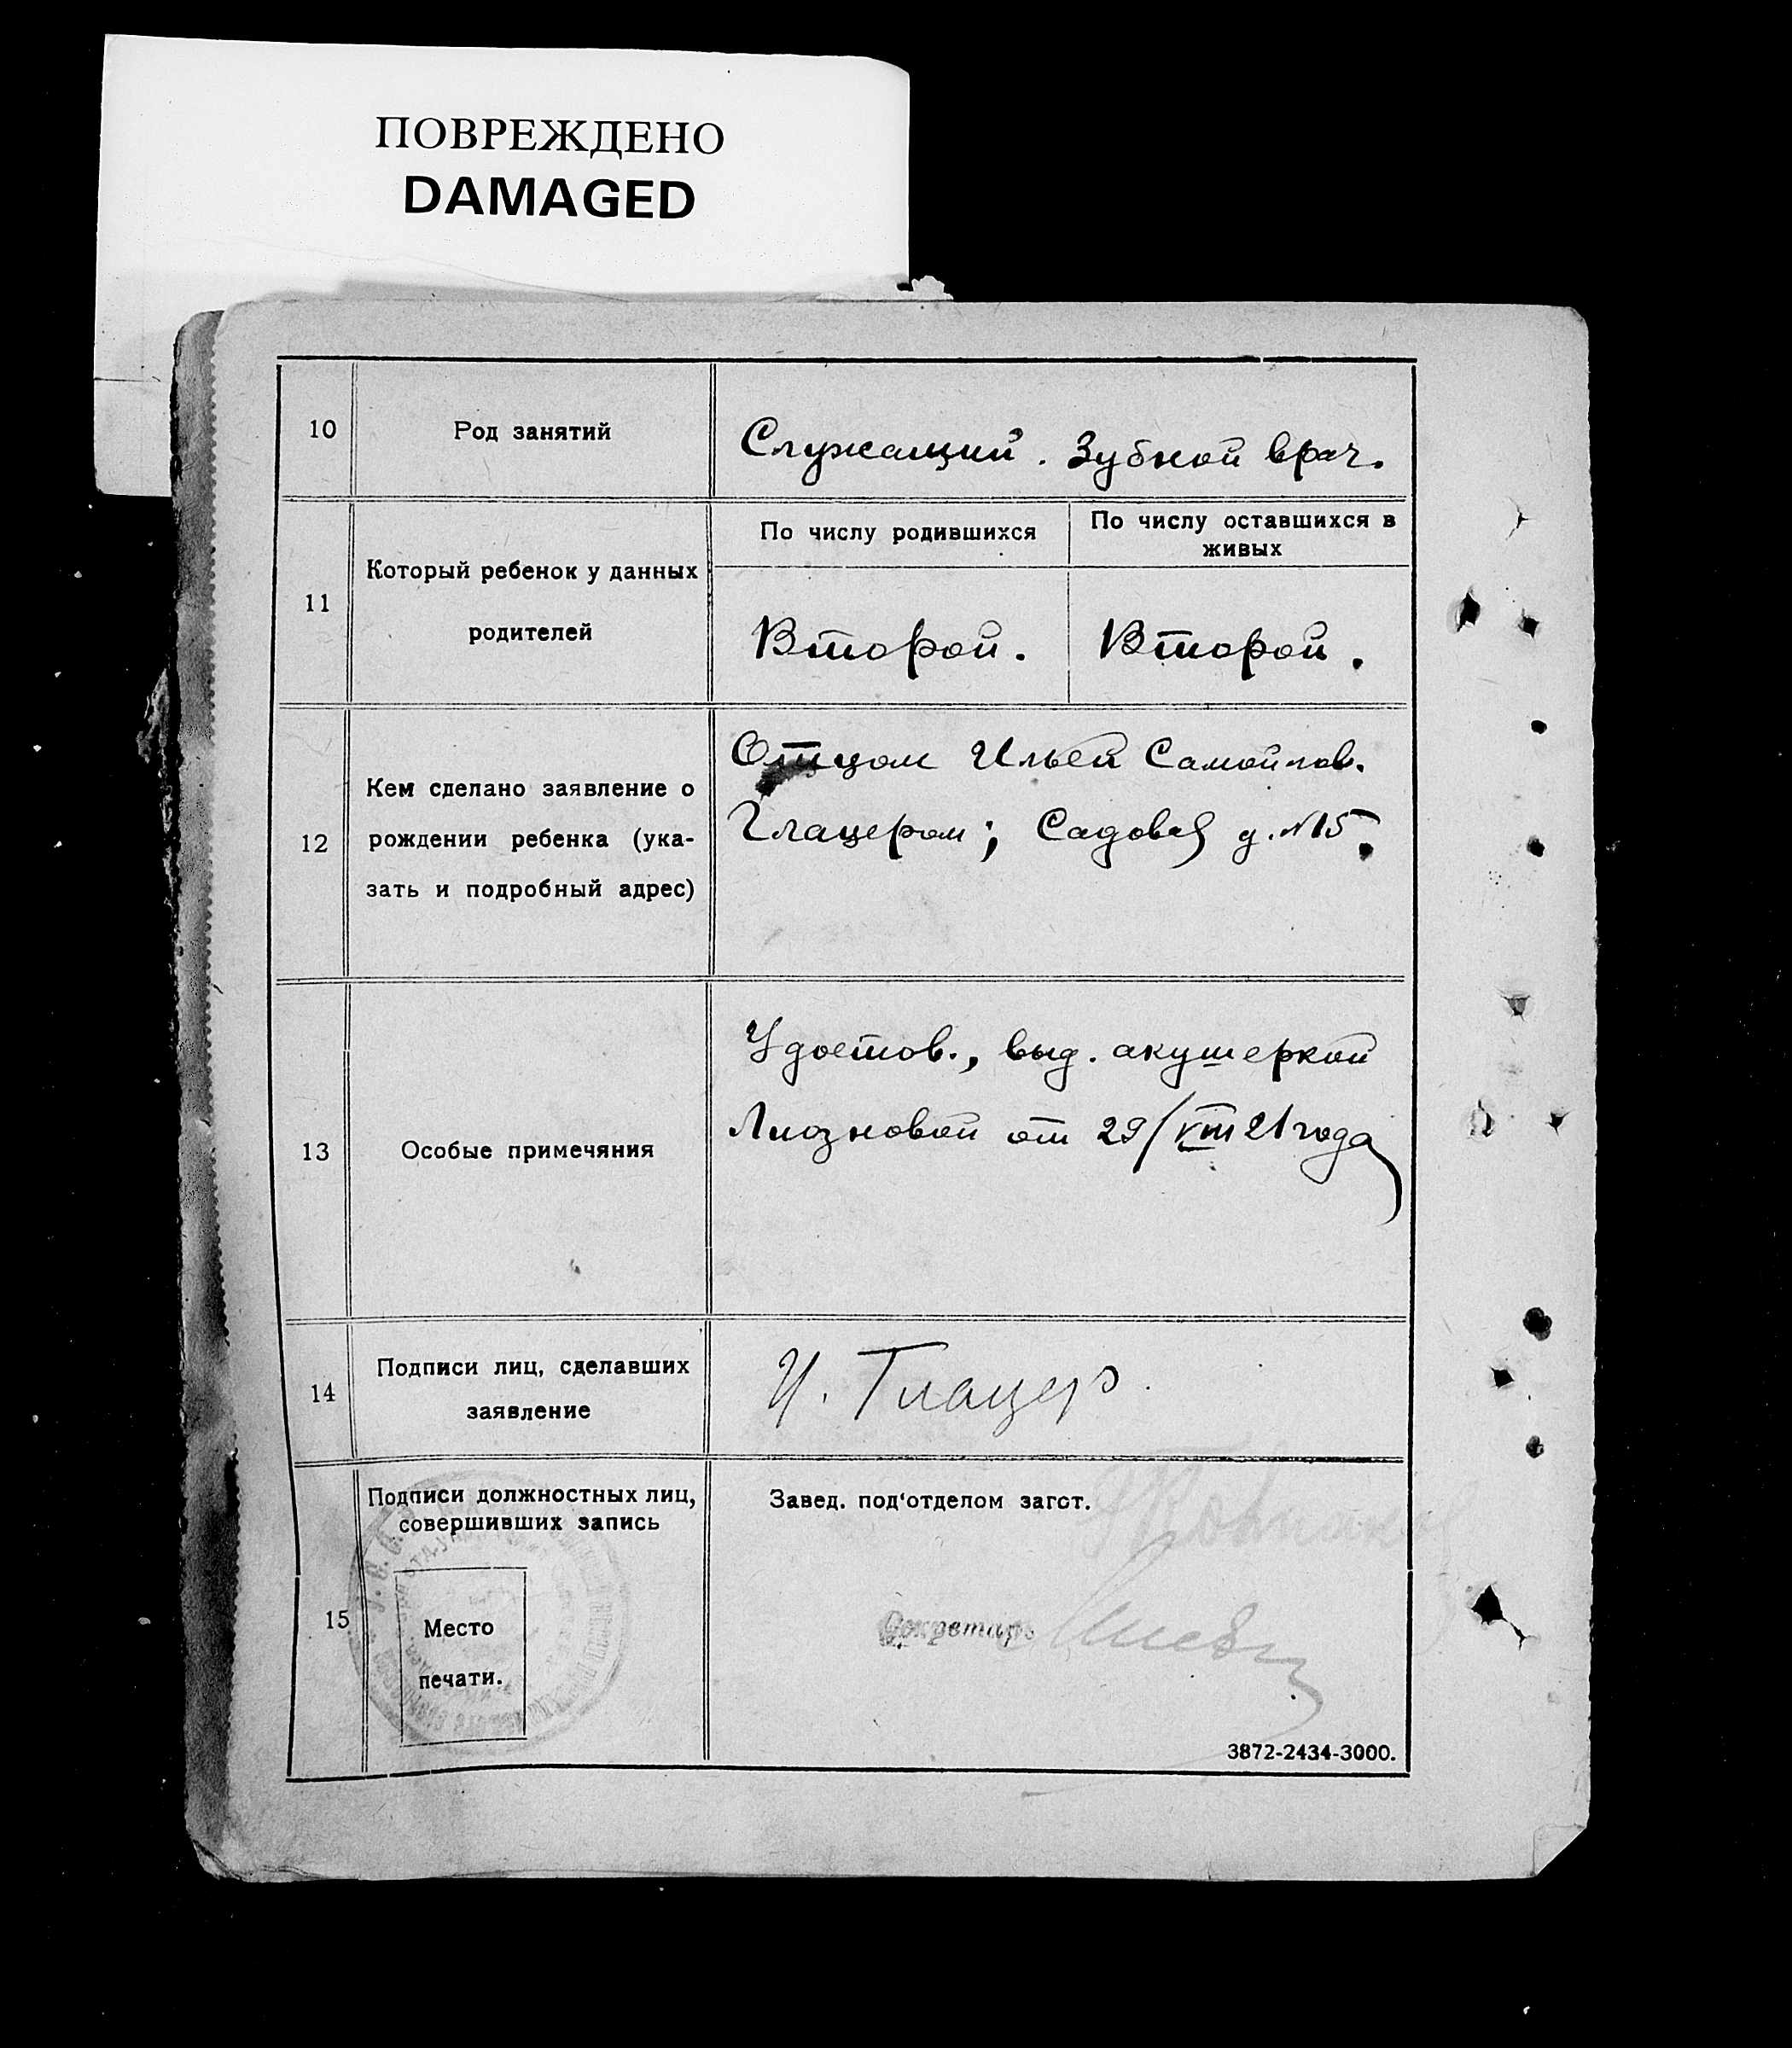 ПОВРЕЖДЕНО
DAMAGED
10 Род занятий Служащий. Зубной врач.
11 Который ребенок у данных родителей
По числу родившихся По числу оставшихся в живых
Второй. Второй.
12 Кем сделано заявление о
рождении ребенка (ука-
зать и подробный адрес)
Отцом Ильей Самойлов.
Глацером; Садовая д. №15.
13 Особые примечяния
Удостов., выд. акушеркой
Лиозновой от 29/VIII 21 года
14 Подписи лиц, сделавших
заявление
И. Глацер
15 Подписи должностных лиц,
совершивших запись
Место
печати.
Завед. под'отделом загст.
Секретарь
3872-2434-3000.